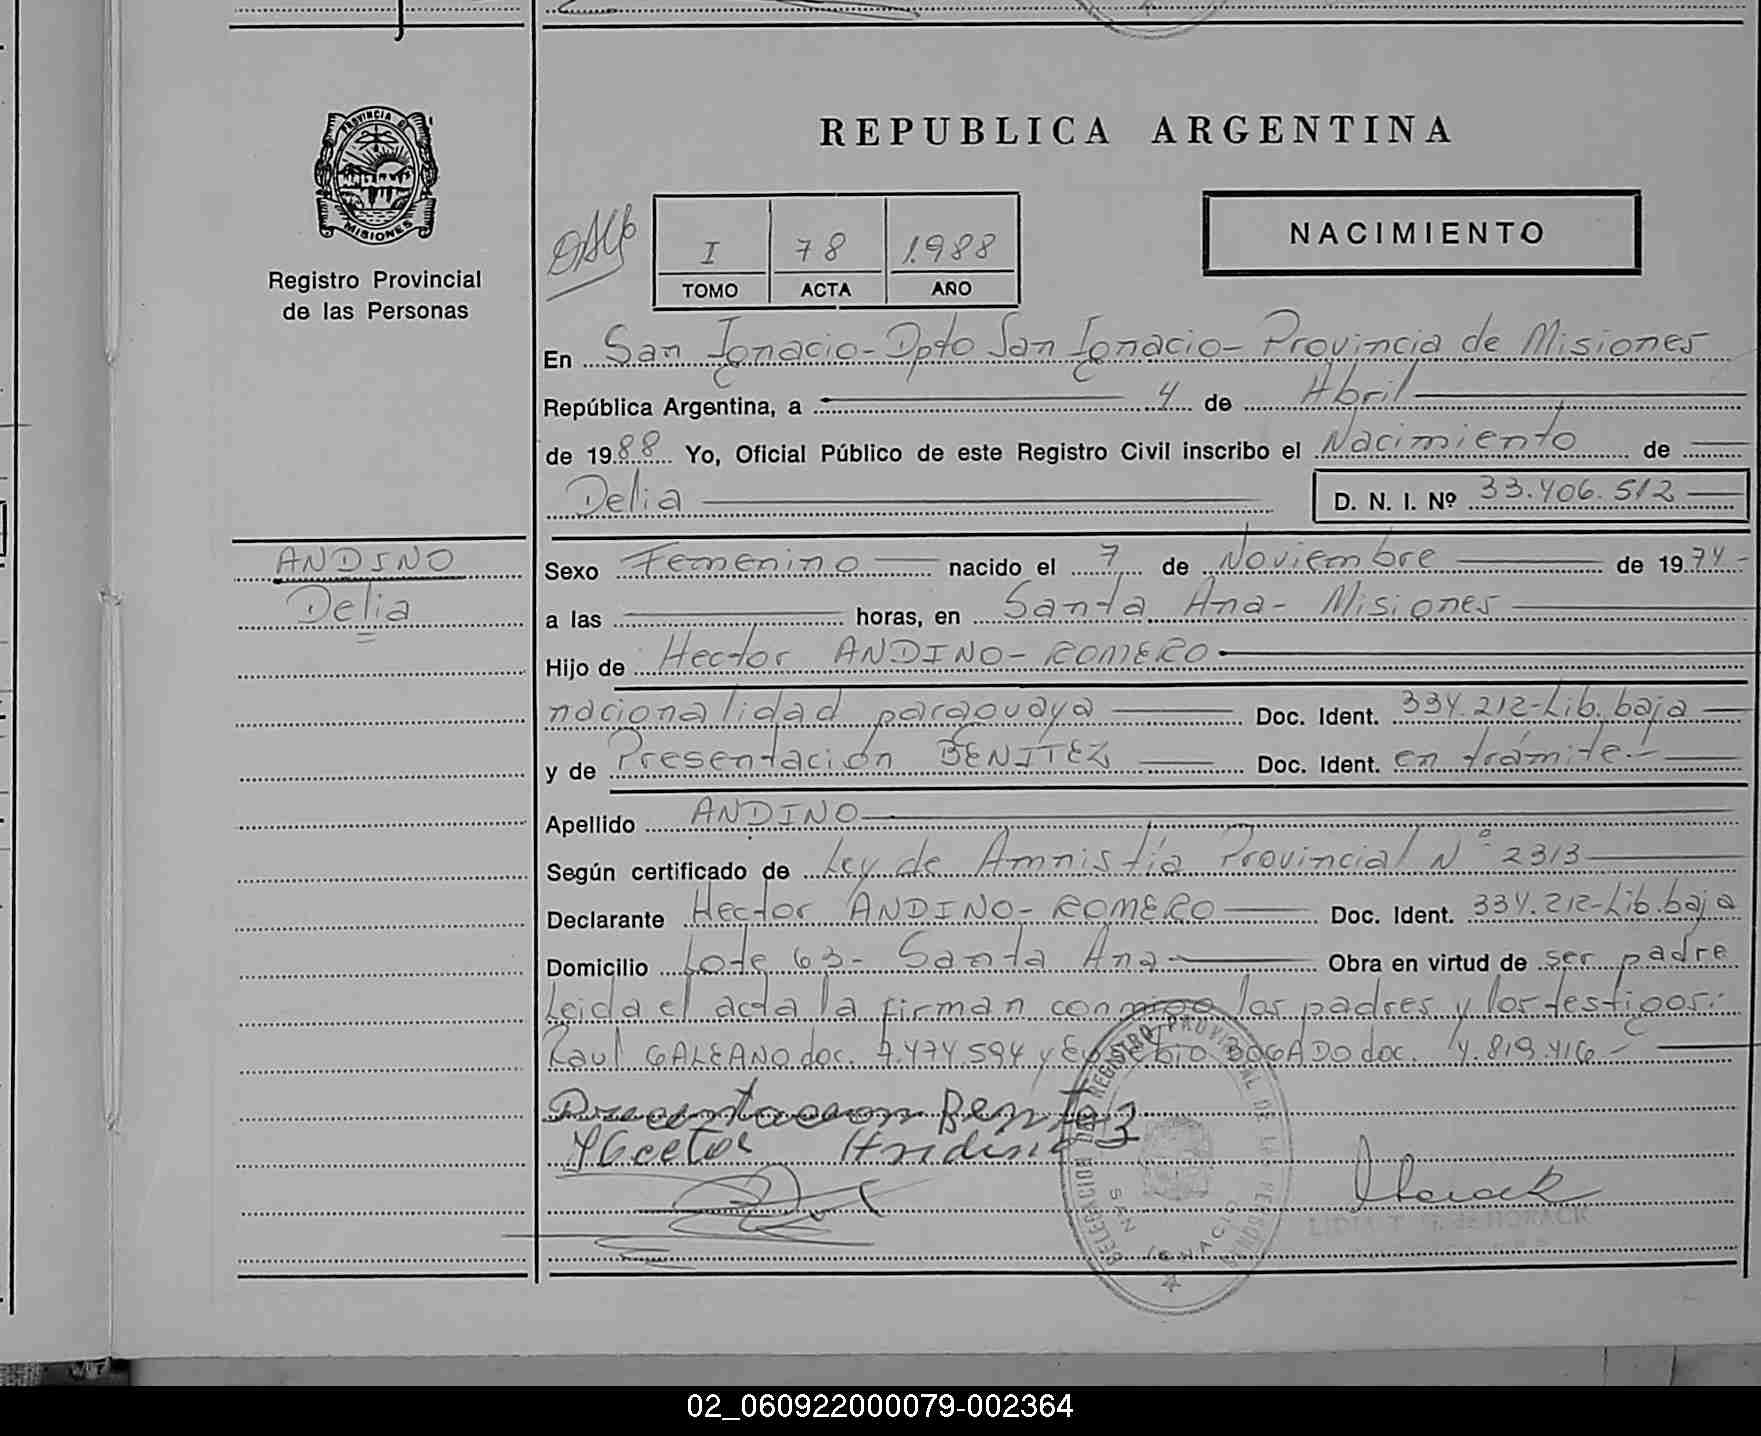 REPUBLICA ARGENTINA
PROVINCIA DE
MISIONES
Registro Provincial
de las Personas
I 78 1.988
TOMO ACTA AÑO
NACIMIENTO
En San Ignacio - Dpto San Ignacio - Provincia de Misiones
República Argentina, a 4 de Abril
de 1988 Yo, Oficial Público de este Registro Civil inscribo el Nacimiento de
Delia D. N. I. Nº 33.406.512
ANDINO
Delia
Sexo Femenino nacido el 7 de Noviembre de 1974-
a las horas, en Santa Ana - Misiones
Hijo de Hector ANDINO - ROMERO
nacionalidad paraguaya Doc. Ident. 334.212-Lib. baja
y de Presentación BENITEZ Doc. Ident. en trámite.-
Apellido ANDINO
Según certificado de Ley de Amnistía Provincial Nº 2313
Declarante Hector ANDINO - ROMERO Doc. Ident. 334.212-Lib. baja
Domicilio Lote 63 - Santa Ana - Obra en virtud de ser padre
Leida el acta la firman conmigo los padres y los testigos:
Raul GALEANO doc. 7.474.594 y Eusebio BOGADO doc. 4.819.416-
Presentacion Benitez
Andino
REGISTRO PROVINCIAL DE LAS PERSONAS
SAN IGNACIO
02_060922000079-002364